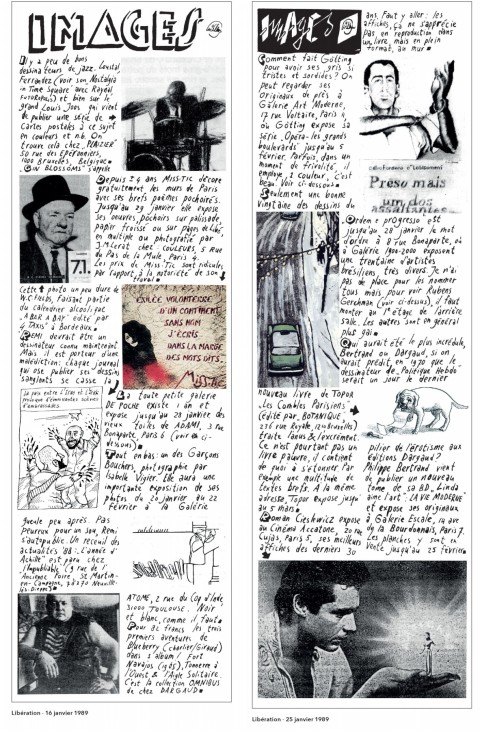 IMAGES
Il y a peu de bons
dessinateurs de jazz. Loustal,
Ferrandez (voir son Nostalgia
in Time Square avec Rayoll,
Futuropolis) et bien sur le
grand Louis Joos qui vient
de publier une série de
cartes postales à ce sujet
en couleurs et n.b. On
trouve cela chez PLAIZIER
50 rue des Eperonniers,
1000 Bruxelles, Belgique.
GIN BLOSSOMS s'appelle
Cette photo un peu de
W.C Fields, faisant partie
du calendrier alcoolique
"A BOR A DAY" édité par
4 TAXIS à Bordeaux.
REMI devrait être un
dessinateur connu maintenant
Mais il est porteur d'une
malédiction: chaque journal
qui ose publier ses dessins
sanglants se casse la
gueule peu après. Pas
Peureux pour un sou, Remi
s'autopublie. Un recueil des
actualités '88: L'année d'
Achille est paru chez
l'Impubliable (9 rue de l'
Ancienne Foire, St Martin-
en-Campagne, 76370 Neuville-
lès-Dieppe)
Depuis 14 ans Miss-Tic décore
gratuitement les murs de Paris
avec ses brefs poèmes pochoirés.
Jusqu'au 29 janvier elle expose
ses oeuvres, pochoirs sur palissade,
papier froissé ou sur pages de Libé,
en multiple ou photographié par
J.M.Lerat chez: COULEURS 5 rue
du Pas de la Mule, Paris 4.
Les prix de Miss.Tic sont ridicules
par rapport à la notoriété de son
travail.
7.1.
EXILÉE VOLONTAIRE
D'UN CONTINENT
SANS NOM
J'ÉCRIS
DANS LA MARGE
DES MOTS DITS.
MISS.TIC
La toute petite galerie
DE POCHE existe 1 an et
expose jusqu'au 28 janvier des
vieux toiles de ADAMI, 3 rue
Bonaparte, Paris 6 (voir ci-
dessous).
Tout en bas: un des Garçons
Bouchers, photographié par
Isabelle Vigier. Elle aura une
importante exposition de ses
photos du 20 janvier au 22
février à la Galerie
ATOME, 2 rue du Coq d'Inde
31000 TOULOUSE. Noir
et blanc, comme il faut.
Pour 82 francs les trois
premiers aventures de
Blueberry (Charlier/Giraud)
dans l'album: Fort
Navajos (1965), Tonnerre à
l'Ouest & l'Aigle Solitaire.
C'est la collection OMNIBUS
de chez DARGAUD.
Libération - 16 janvier 1989
IMAGES
Comment fait Götting
pour avoir ses gris si
tristes et sordides? On
peut regarder ses
Originaux de près à
Galerie Art Moderne,
17 rue Voltaire, Paris 4,
où Götting expose sa
série Opéra-les grands
boulevards jusqu'au 5
février. Parfois, dans un
moment de frivolité il
employe 1 couleur. C'est
beau. Voir ci-dessous.
Seulement une bonne
vingtaine des dessins du
ans. Faut y aller: les
affiches, ça ne s'apprécie
pas en reproduction dans
un livre, mais en plein
format, au mur.
Préso mais
um dos
assaltantes
Ordem e progresso est
jusqu'au 28 janvier le mot
d'ordre à 8 rue Bonaparte, où
à Galerie 1900-2000 exposent
une trentaine d'artistes
brésiliens très divers. Je n'ai
pas de place pour les nommer
tous mais pour voir Rubens
Gerchman (voir ci-dessus), il faut
monter au 1er étage de l'arrière
salle. Les autres sont en général
plus gai.
Qui aurait été le plus incrédule,
Bertrand ou Dargaud, si on
aurait prédit, en 1970 que le
dessinateur de "Politique Hebdo"
serait un jour le dernier
nouveau livre de TOPOR
"Les Combles Parisiens"
(édité par BOTANIQUE,
236 rue Royale, 1210 Bruxelles)
traite l'anus & l'excrément.
Ce n'est pourtant pas un
livre pauvre, il contient
de quoi à s'étonner. Par
exemple une multitude de
textes brefs. A la même
adresse, Topor expose jusqu'
au 5 mars.
Roman Cieslewicz expose
au Cinéma Accatone, 20 rue
Cujas, Paris 5, ses meilleurs
affiches des derniers 30
pilier de l'érotisme aux
éditions Dargaud?
Philippe Bertrand vient
de publier un nouveau
tome de sa BD, Linda
aime l'art "LA VIE MODERNE"
et expose ses originaux
à Galerie Escale, 14 ave
de la Bourdonnais, Paris 7.
Les planches y sont en
Vente jusqu'au 25 février.
Libération - 25 janvier 1989